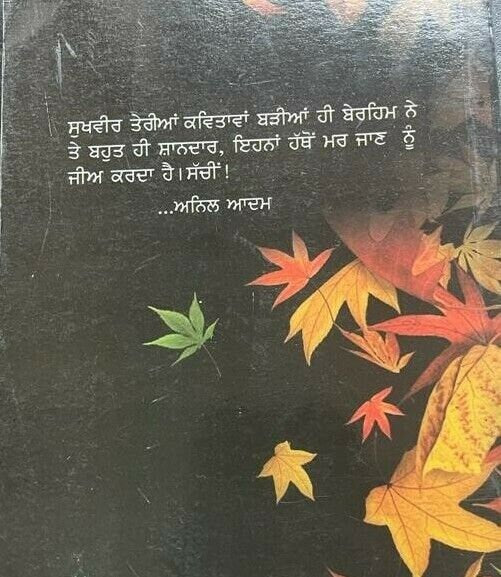 ਸੁਖਵੀਰ ਤੇਰੀਆਂ ਕਵਿਤਾਵਾਂ ਬੜੀਆਂ ਹੀ ਬੇਰਹਿਮ ਨੇ
ਤੇ ਬਹੁਤ ਹੀ ਸ਼ਾਨਦਾਰ, ਇਹਨਾਂ ਹੱਥੋਂ ਮਰ ਜਾਣ ਨੂੰ
ਜੀਅ ਕਰਦਾ ਹੈ। ਸੱਚੀਂ!
...ਅਨਿਲ ਆਦਮ